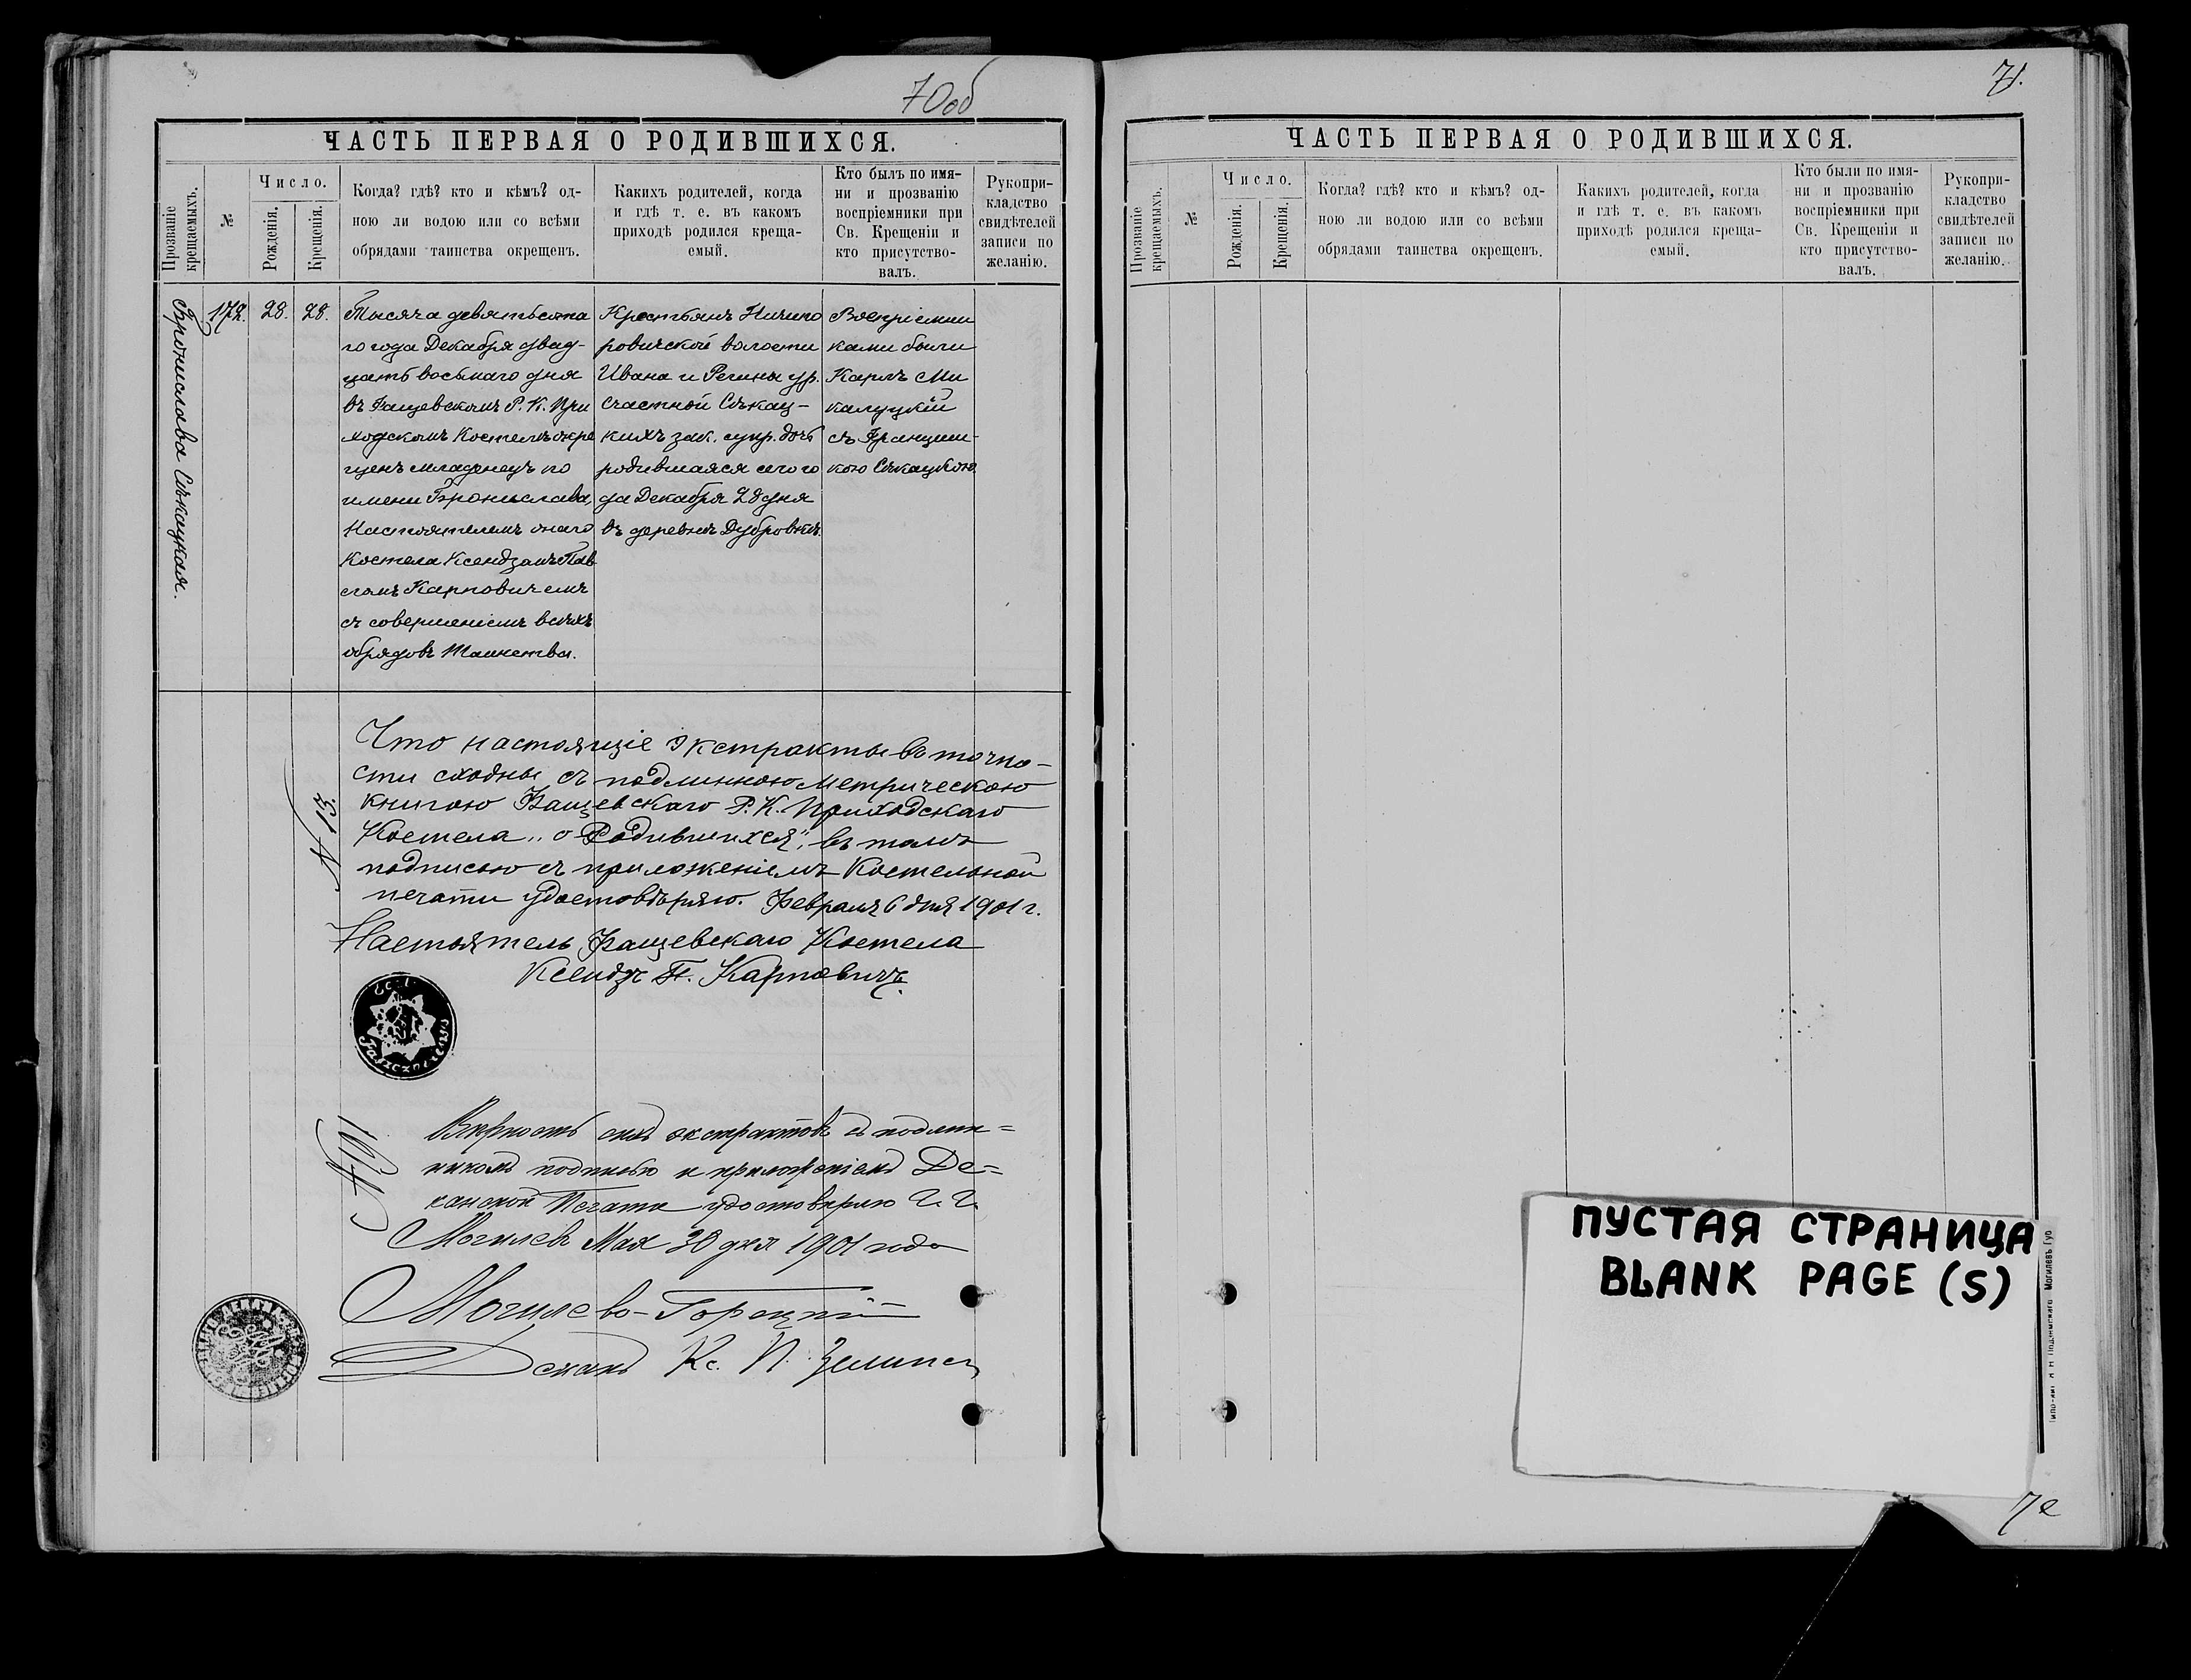 70об
ЧАСТЬ ПЕРВАЯ О РОДИВШИХСЯ.
Прозваніе крещаемыхъ.
№
Число.
Рожденія.
Крещенія.
Когда? гдѣ? кто и кѣмъ? од-
ною ли водою или со всѣми
обрядами таинства окрещенъ.
Какихъ родителей, когда
и гдѣ т. е. въ какомъ
приходѣ родился креща-
емый.
Кто былъ по имя-
ни и прозванію
воспріемники при
Св. Крещеніи и
кто присутство-
валъ.
Рукопри-
кладство
свидѣтелей
записи по
желанію.
Бронислава Сѣкацкая.
172.
28.
28.
Тысяча девятьсота
го года Декабря двад-
цать восьмаго дня
въ Фащевскомъ Р. К. При
ходскомъ Костелѣ окре
щенъ младенецъ по
имени Бронислава,
Настоятелемъ онаго
Костела Ксендзомъ Пав
ломъ Карповичемъ
съ совершеніемъ всѣхъ
обрядовъ Таинства.
Крестьянъ Ничипо
ровичской волости
Ивана и Регины ур.
Счастной Сѣкац-
кихъ зак. супр. дочь
родившаяся сего го
да Декабря 28 дня
въ деревнѣ Дубровкѣ.
Воспріемни
ками были
Карлъ Ми
калуцкій
съ Франциш-
кою Сѣкацкою.
№ 13.
Что настоящіе экстракты въ точно-
сти сходны съ подлинною метрическою
книгою Фащевскаго Р. К. Приходскаго
Костела „о Родившихся", въ томъ
подписью съ приложеніемъ Костельной
печати удостовѣряю. Февраля 6 дня 1901 г.
Настоятель Фащевскаго Костела
Ксендзъ П. Карповичъ.
№ 191
Вѣрность сихъ экстрактовъ съ подлин=
никомъ подписью и приложеніемъ Де=
канской Печати удостовѣряю Г. Г.
Могилевъ Мая 30 дня 1901 года
Могилево-Горецкій
Деканъ Кс. П. Зелинск
71.
ЧАСТЬ ПЕРВАЯ О РОДИВШИХСЯ.
Прозваніе крещаемыхъ.
№
Число.
Рожденія.
Крещенія.
Когда? гдѣ? кто и кѣмъ? од-
ною ли водою или со всѣми
обрядами таинства окрещенъ.
Какихъ родителей, когда
и гдѣ т. е. въ какомъ
приходѣ родился креща-
емый.
Кто были по имя-
ни и прозванію
воспріемники при
Св. Крещеніи и
кто присутство-
валъ.
Рукопри-
кладство
свидѣтелей
записи по
желанію.
ПУСТАЯ СТРАНИЦА
BLANK PAGE (S)
Могилевъ Губ